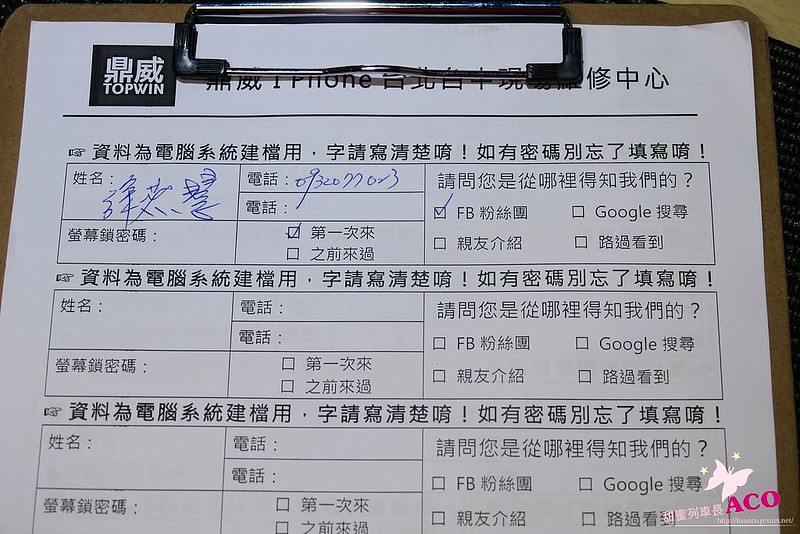 鼎威
TOPWIN
鼎威 I Phone 台北台中現場維修中心
☞ 資料為電腦系統建檔用，字請寫清楚唷！如有密碼別忘了填寫唷！
姓名： 電話：0932077023 請問您是從哪裡得知我們的？
電話： ☑ FB 粉絲團 □ Google 搜尋
螢幕鎖密碼： ☑ 第一次來 □ 親友介紹 □ 路過看到
□ 之前來過
☞ 資料為電腦系統建檔用，字請寫清楚唷！如有密碼別忘了填寫唷！
姓名： 電話： 請問您是從哪裡得知我們的？
電話： □ FB 粉絲團 □ Google 搜尋
螢幕鎖密碼： □ 第一次來 □ 親友介紹 □ 路過看到
□ 之前來過
☞ 資料為電腦系統建檔用，字請寫清楚唷！如有密碼別忘了填寫唷！
姓名： 電話： 請問您是從哪裡得知我們的？
電話： □ FB 粉絲團 □ Google 搜尋
螢幕鎖密碼： □ 第一次來 □ 親友介紹 □ 路過看到
□ 之前來過
甜蜜列車長 ACO